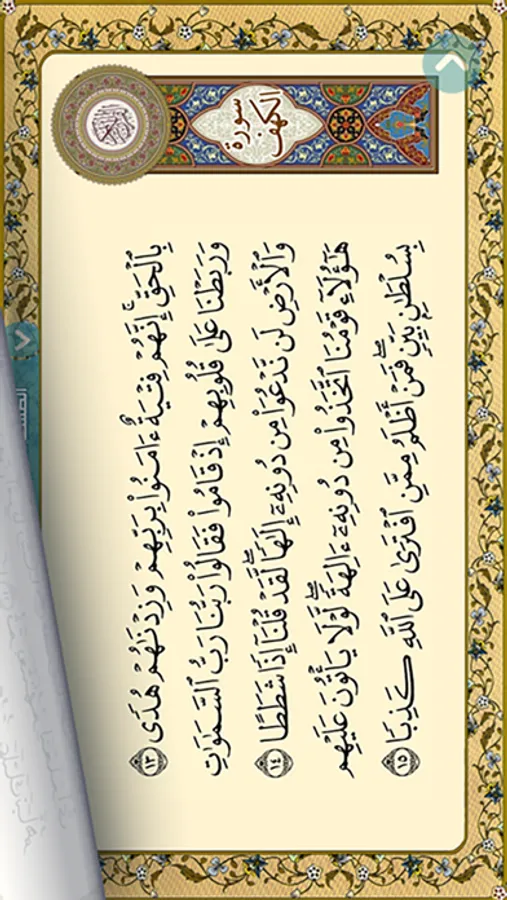 سورة الكهف
بِٱلْحَقِّ ۚ إِنَّهُمْ فِتْيَةٌ ءَامَنُوا۟ بِرَبِّهِمْ وَزِدْنَٰهُمْ هُدًى ١٣
وَرَبَطْنَا عَلَىٰ قُلُوبِهِمْ إِذْ قَامُوا۟ فَقَالُوا۟ رَبُّنَا رَبُّ ٱلسَّمَٰوَٰتِ
وَٱلْأَرْضِ لَن نَّدْعُوَا۟ مِن دُونِهِۦٓ إِلَٰهًا ۖ لَّقَدْ قُلْنَآ إِذًا شَطَطًا ١٤
هَٰٓؤُلَآءِ قَوْمُنَا ٱتَّخَذُوا۟ مِن دُونِهِۦٓ ءَالِهَةً ۖ لَّوْلَا يَأْتُونَ عَلَيْهِم
بِسُلْطَٰنٍۭ بَيِّنٍ ۖ فَمَنْ أَظْلَمُ مِمَّنِ ٱفْتَرَىٰ عَلَى ٱللَّهِ كَذِبًا ١٥